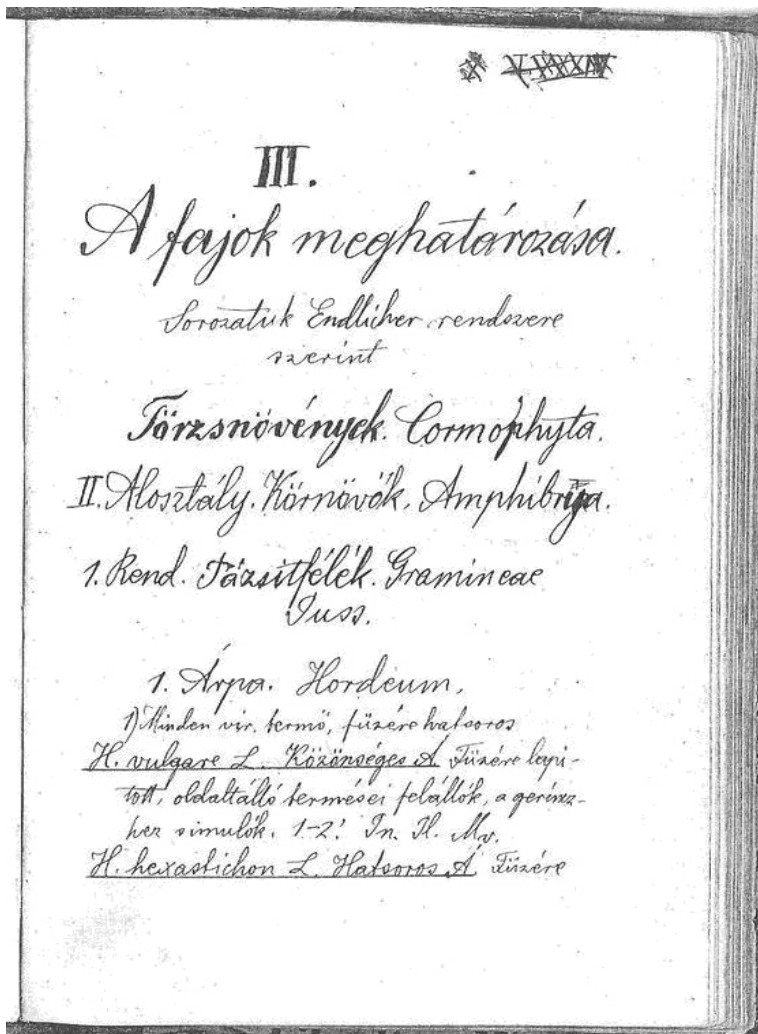 III.
A fajok meghatározása.
Sorozatuk Endlicher rendszere
szerint
Törzsnövények. Cormophyta.
II. Alosztály. Körnövők. Amphibrya.
1. Rend. Fűzsitfélék. Gramineae
Juss.
1. Árpa. Hordeum.
1) Minden vir. termő, füzére hatsoros
H. vulgare L. Közönséges Á. Füzére lapí-
tott, oldaltálló termései felállók, a gerincz-
hez simulók. 1-2'. Jn. Jl. Mv.
H. hexastichon L. Hatsoros Á. Füzére